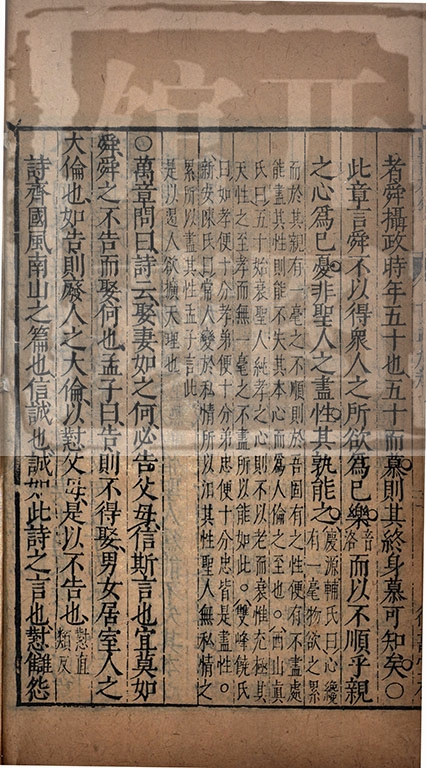 者舜攝政時年五十也五十而慕則其終身慕可知矣○
此章言舜不以得衆人之所欲為已樂音洛而以不順乎親
之心為已憂非聖人之盡性其孰能之慶源輔氏曰心纔有一毫物欲之累
而於其親有一毫之不順則於吾固有之性便有不盡處
能盡其性則能不失其本心而為人倫之至也○西山真
氏曰五十始衰聖人純孝之心則不以老而衰惟充極其
天性之孝而無一毫之不盡所以能如此○雙峰饒氏
曰如孝便十分孝弟便十分弟忠便十分忠皆是盡性○
新安陳氏曰常人變於私情所以汨其性聖人無私情之
累所以盡其性孟子言此
是以遏人欲擴天理也
○萬章問曰詩云娶妻如之何必告父母信斯言也宜莫如
舜舜之不告而娶何也孟子曰告則不得娶男女居室人之
大倫也如告則廢人之大倫以懟父母是以不告也懟直類反
詩齊國風南山之篇也信誠也誠如此詩之言也懟讎怨